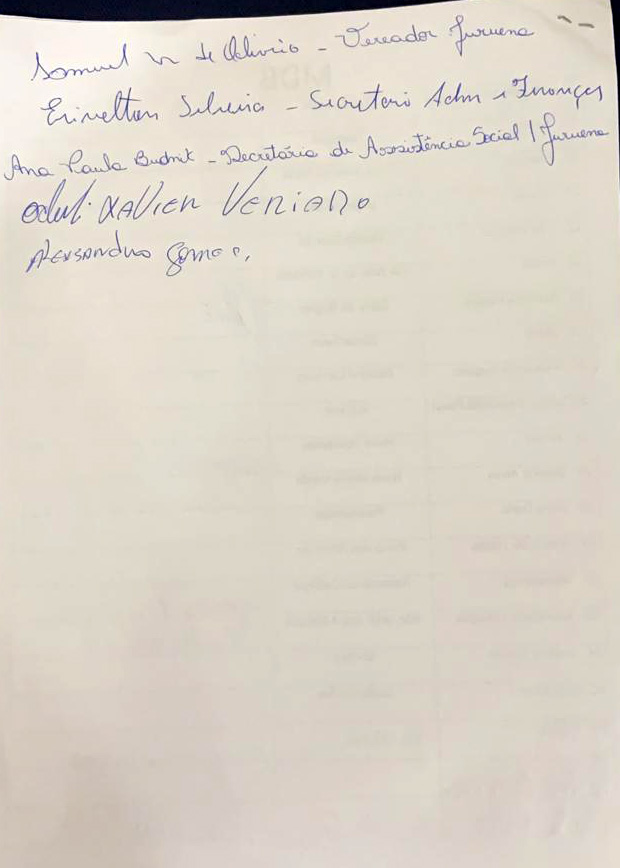 Samuel de Oliveira - Vereador Juruena
Erivelton Silveira - Secretario Adm e Finanças
Ana Paula Budnik - Secretária de Assistência Social / Juruena
XAVIER VERIANO
Alexsandro Gomes